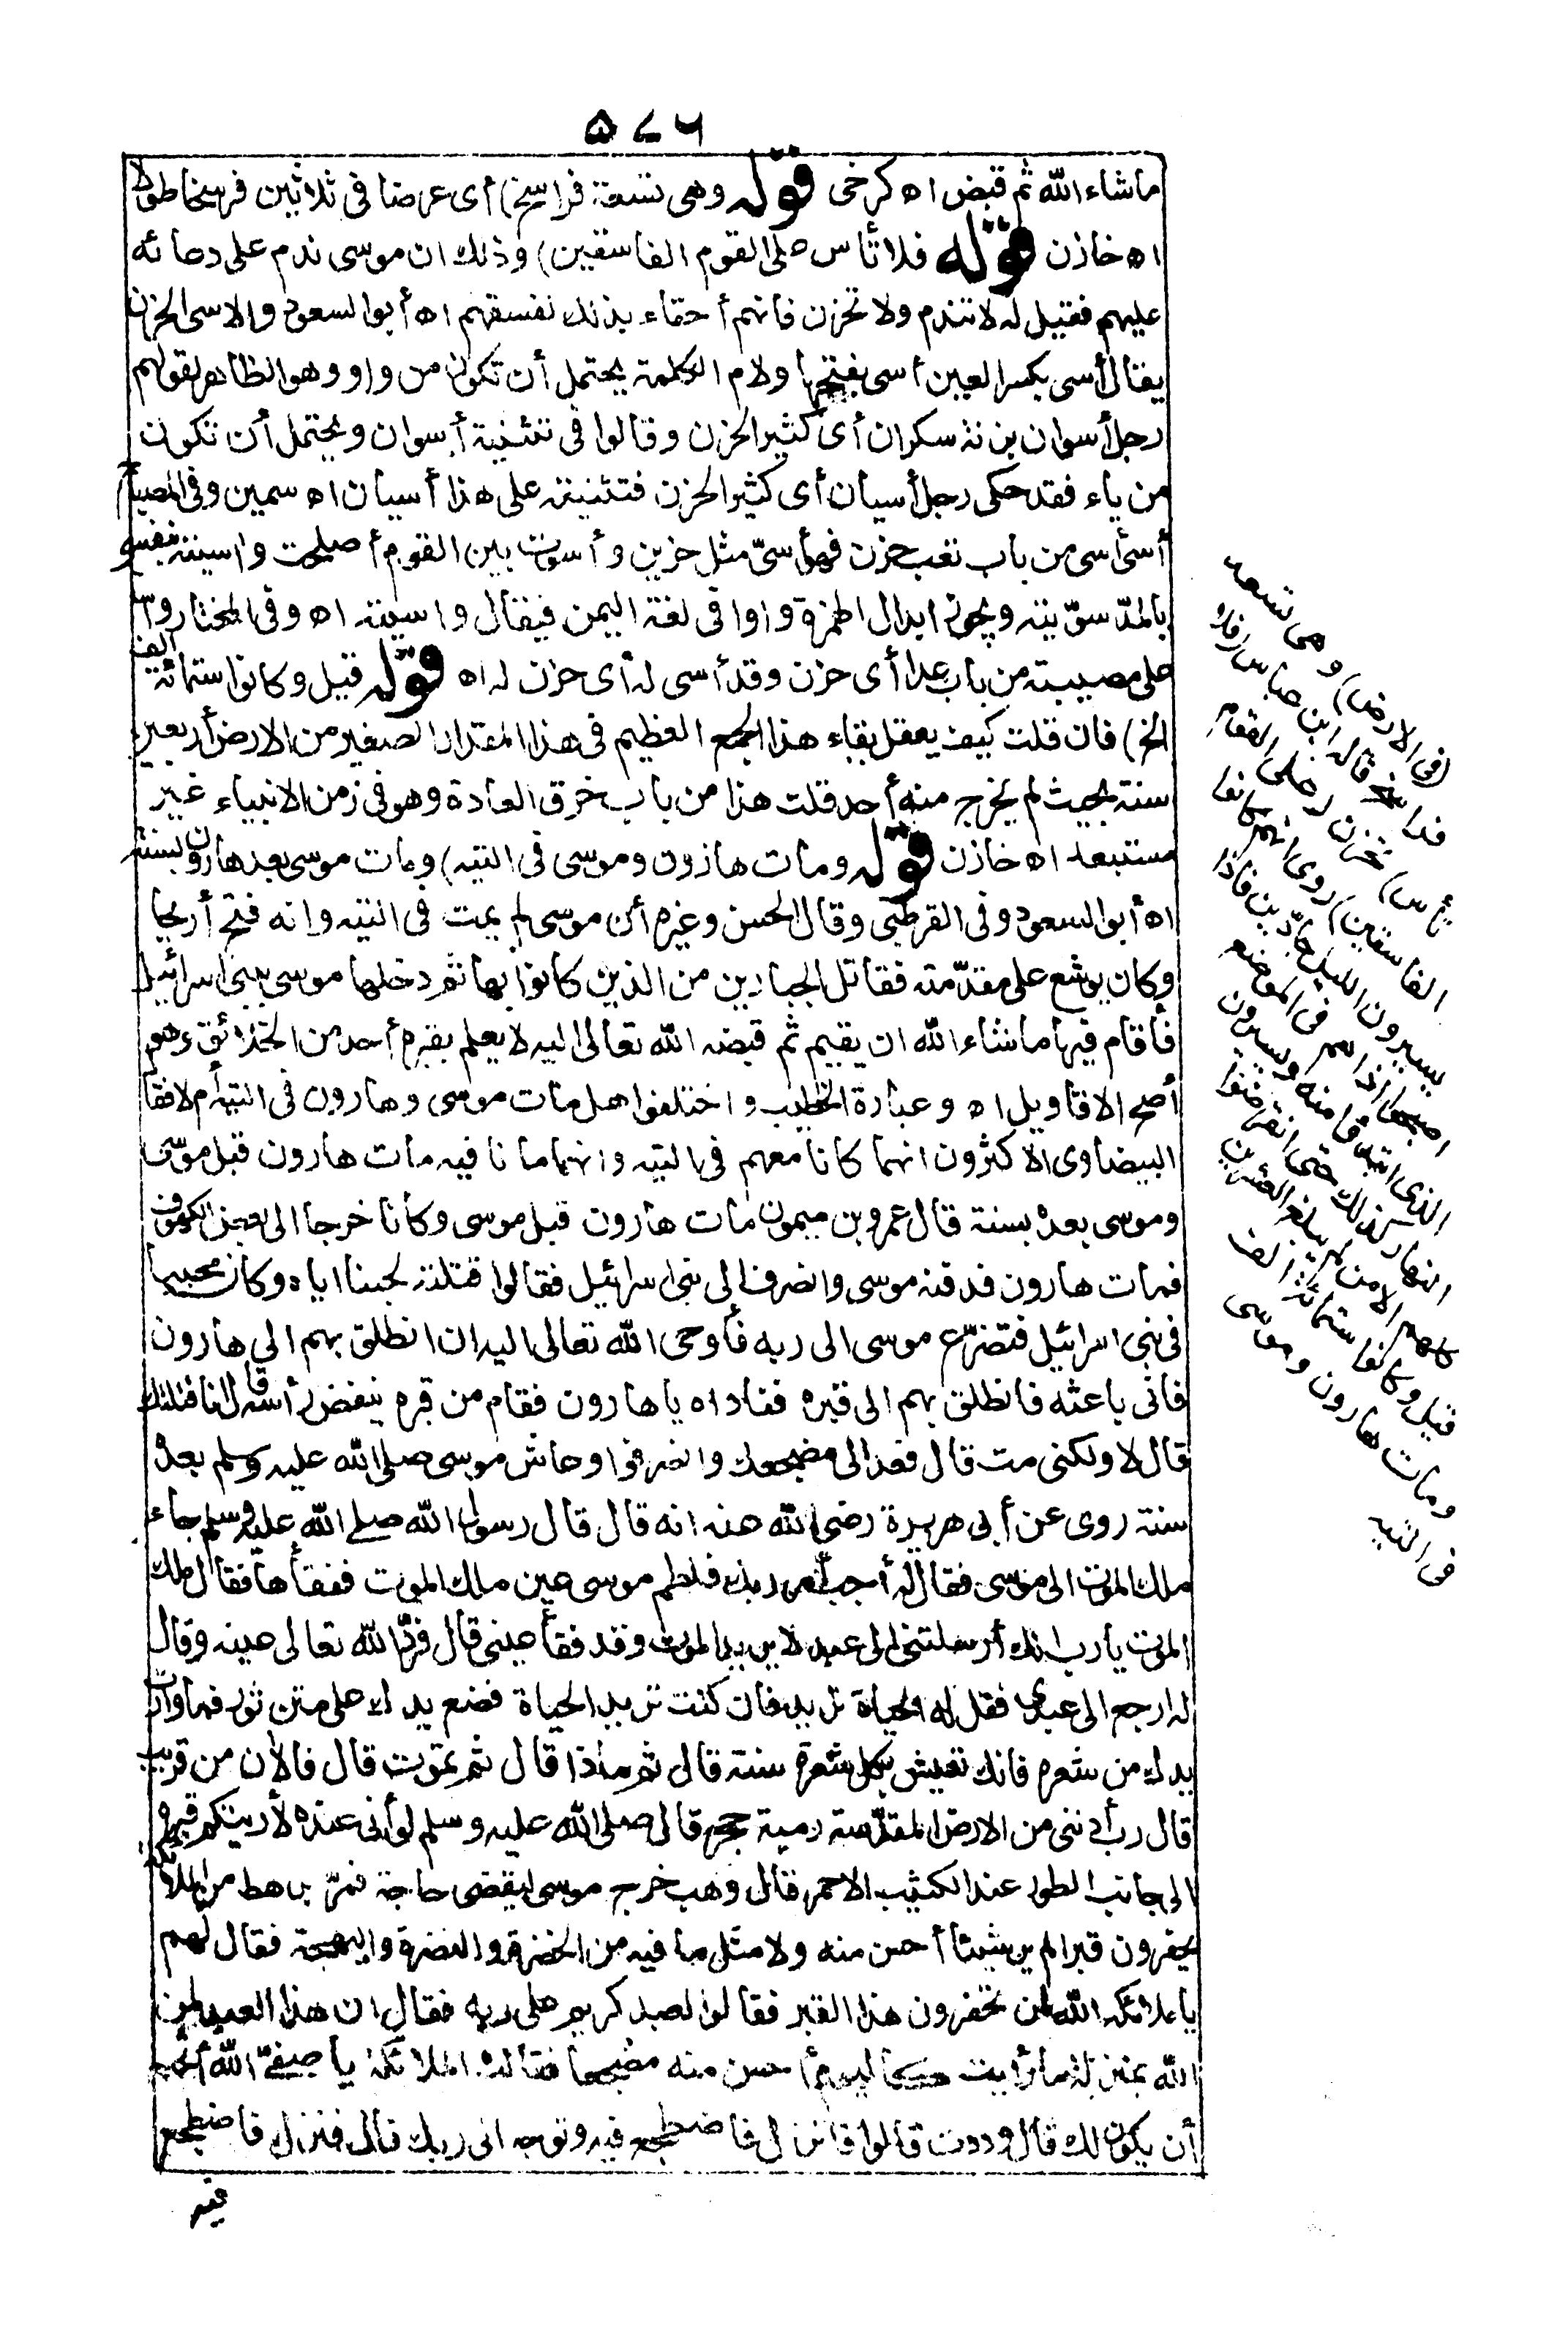 ٥٧٦
ماشاء الله ثم قبض اه كرخى قوله وهى تسعة فراسخ) أى عرضا فى ثلاثين فرسخا طولا
اه خازن قوله فلا تأس على القوم الفاسقين) وذلك ان موسى ندم على دعائه
عليهم فقيل له لا تندم ولا تحزن فانهم أحقاء بذلك لفسقهم اه أبو السعود والاسى الحزن
يقال أسى بكسر العين أسى بفتحها ولام الكلمة يحتمل أن تكون من واو وهو الظاهر لقولهم
رجل أسوان بزنة سكران أى كثير الحزن وقالوا فى تثنية أسوان ويحتمل أن تكون
من ياء فقد حكى رجل أسيان أى كثير الحزن فتثنيته على هذا أسيان اه سمين وفى المصباح
أسى أسى من باب تعب حزن فهو أسىّ مثل حزين وأسوت بين القوم أصلحت وآسيته بنفسى
بالمدّ سوّيته ويجوز ابدال الهمزة واوا فى لغة اليمن فيقال واسيته اه وفى المختار وأسا
على مصيبته من باب عدا أى حزن وقد أسى له أى حزن له اه قوله قيل وكانوا ستمائة ألف
الخ) فان قلت كيف يعقل بقاء هذا الجمع العظيم فى هذا المقدار الصغير من الارض أربعين
سنة بحيث لم يخرج منه أحد قلت هذا من باب خرق العادة وهو فى زمن الانبياء غير
مستبعد اه خازن قوله ومات هارون وموسى فى التيه) ومات موسى بعد هارون بسنة
اه أبو السعود وفى القرطبى وقال الحسن وغيره أن موسى لم يمت فى التيه وانه فتح أريحا
وكان يوشع على مقدّمته فقاتل الجبارين من الذين كانوا بها ثم دخلها موسى ببنى اسرائيل
فأقام فيها ماشاء الله ان يقيم ثم قبضه الله تعالى اليه لا يعلم بقبره أحد من الخلائق وهو
أصح الاقاويل اه وعبارة الخطيب واختلفوا هل مات موسى وهارون فى التيه أم لا فقال
البيضاوى الاكثرون انهما كانا معهم فى التيه وانهما ماتا فيه مات هارون قبل موسى
وموسى بعده بسنة قال عمرو بن ميمون مات هارون قبل موسى وكانا خرجا الى بعض الكهوف
فمات هارون فدفنه موسى وانصرف الى بنى اسرائيل فقالوا قتلته لحبنا اياه وكان محببا
فى بنى اسرائيل فتضرّع موسى الى ربه فأوحى الله تعالى اليه ان انطلق بهم الى هارون
فانى باعثه فانطلق بهم الى قبره فناداه ياهارون فقام من قبره ينفض رأسه قال أنا قتلتك
قال لا ولكنى مت قال فعد الى مضجعك وانصرفوا وعاش موسى صلى الله عليه وسلم بعده
سنة روى عن أبى هريرة رضى الله عنه انه قال قال رسول الله صلى الله عليه وسلم جاء
ملك الموت الى موسى فقال له أجب أمر ربك فلطم موسى عين ملك الموت ففقأها فقال ملك
الموت يارب انك أرسلتنى الى عبد لا يريد الموت وقد فقأ عينى قال فردّ الله تعالى عينه وقال
له ارجع الى عبدى فقل له الحياة تريد فان كنت تريد الحياة فضع يدك على متن ثور فما وارت
يدك من شعره فانك تعيش بكل شعرة سنة قال ثم ماذا قال ثم تموت قال فالآن من قريب
قال رب أدننى من الارض المقدّسة رمية حجر قال صلى الله عليه وسلم لو أنى عنده لأريتكم قبره
الى جانب الطور عند الكثيب الاحمر قال وهب خرج موسى ليقضى حاجة فمرّ برهط من الملائكة
يحفرون قبرا لم ير شيئا أحسن منه ولا مثل ما فيه من الخضرة والنضرة والبهجة فقال لهم
ياملائكة الله لمن تحفرون هذا القبر فقالوا لعبد كريم على ربه فقال ان هذا العبد لمن
الله بمنزلة ما رأيت كاليوم أحسن منه مضجعا فقالت الملائكة ياصفىّ الله أتحب
أن يكون لك قال وددت قالوا فانزل فاضطجع فيه وتوجه الى ربك قال فنزل فاضطجع
فيه
(فى الارض) وهى تسعة
فراسخ قاله ابن عباس (فلا
تأس) تحزن (على القوم
الفاسقين) روى انهم كانوا
يسيرون الليل جادّين فاذا
اصبحوا اذا هم فى الموضع
الذى ابتدؤا منه ويسيرون
النهار كذلك حتى انقرضوا
كلهم الا من لم يبلغ العشرين
قيل وكانوا ستمائة ألف
ومات هارون وموسى
فى التيه